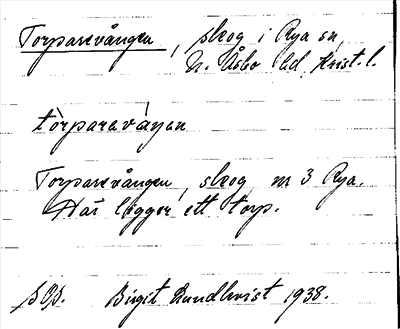 Torparevången, skog i Rya sn,
N. Åsbo hd, Krist. l.
tòrpareváŋen
Torparevången, skog, nr 3 Rya.
Här ligger ett torp.
Birgit Lundkvist 1938.